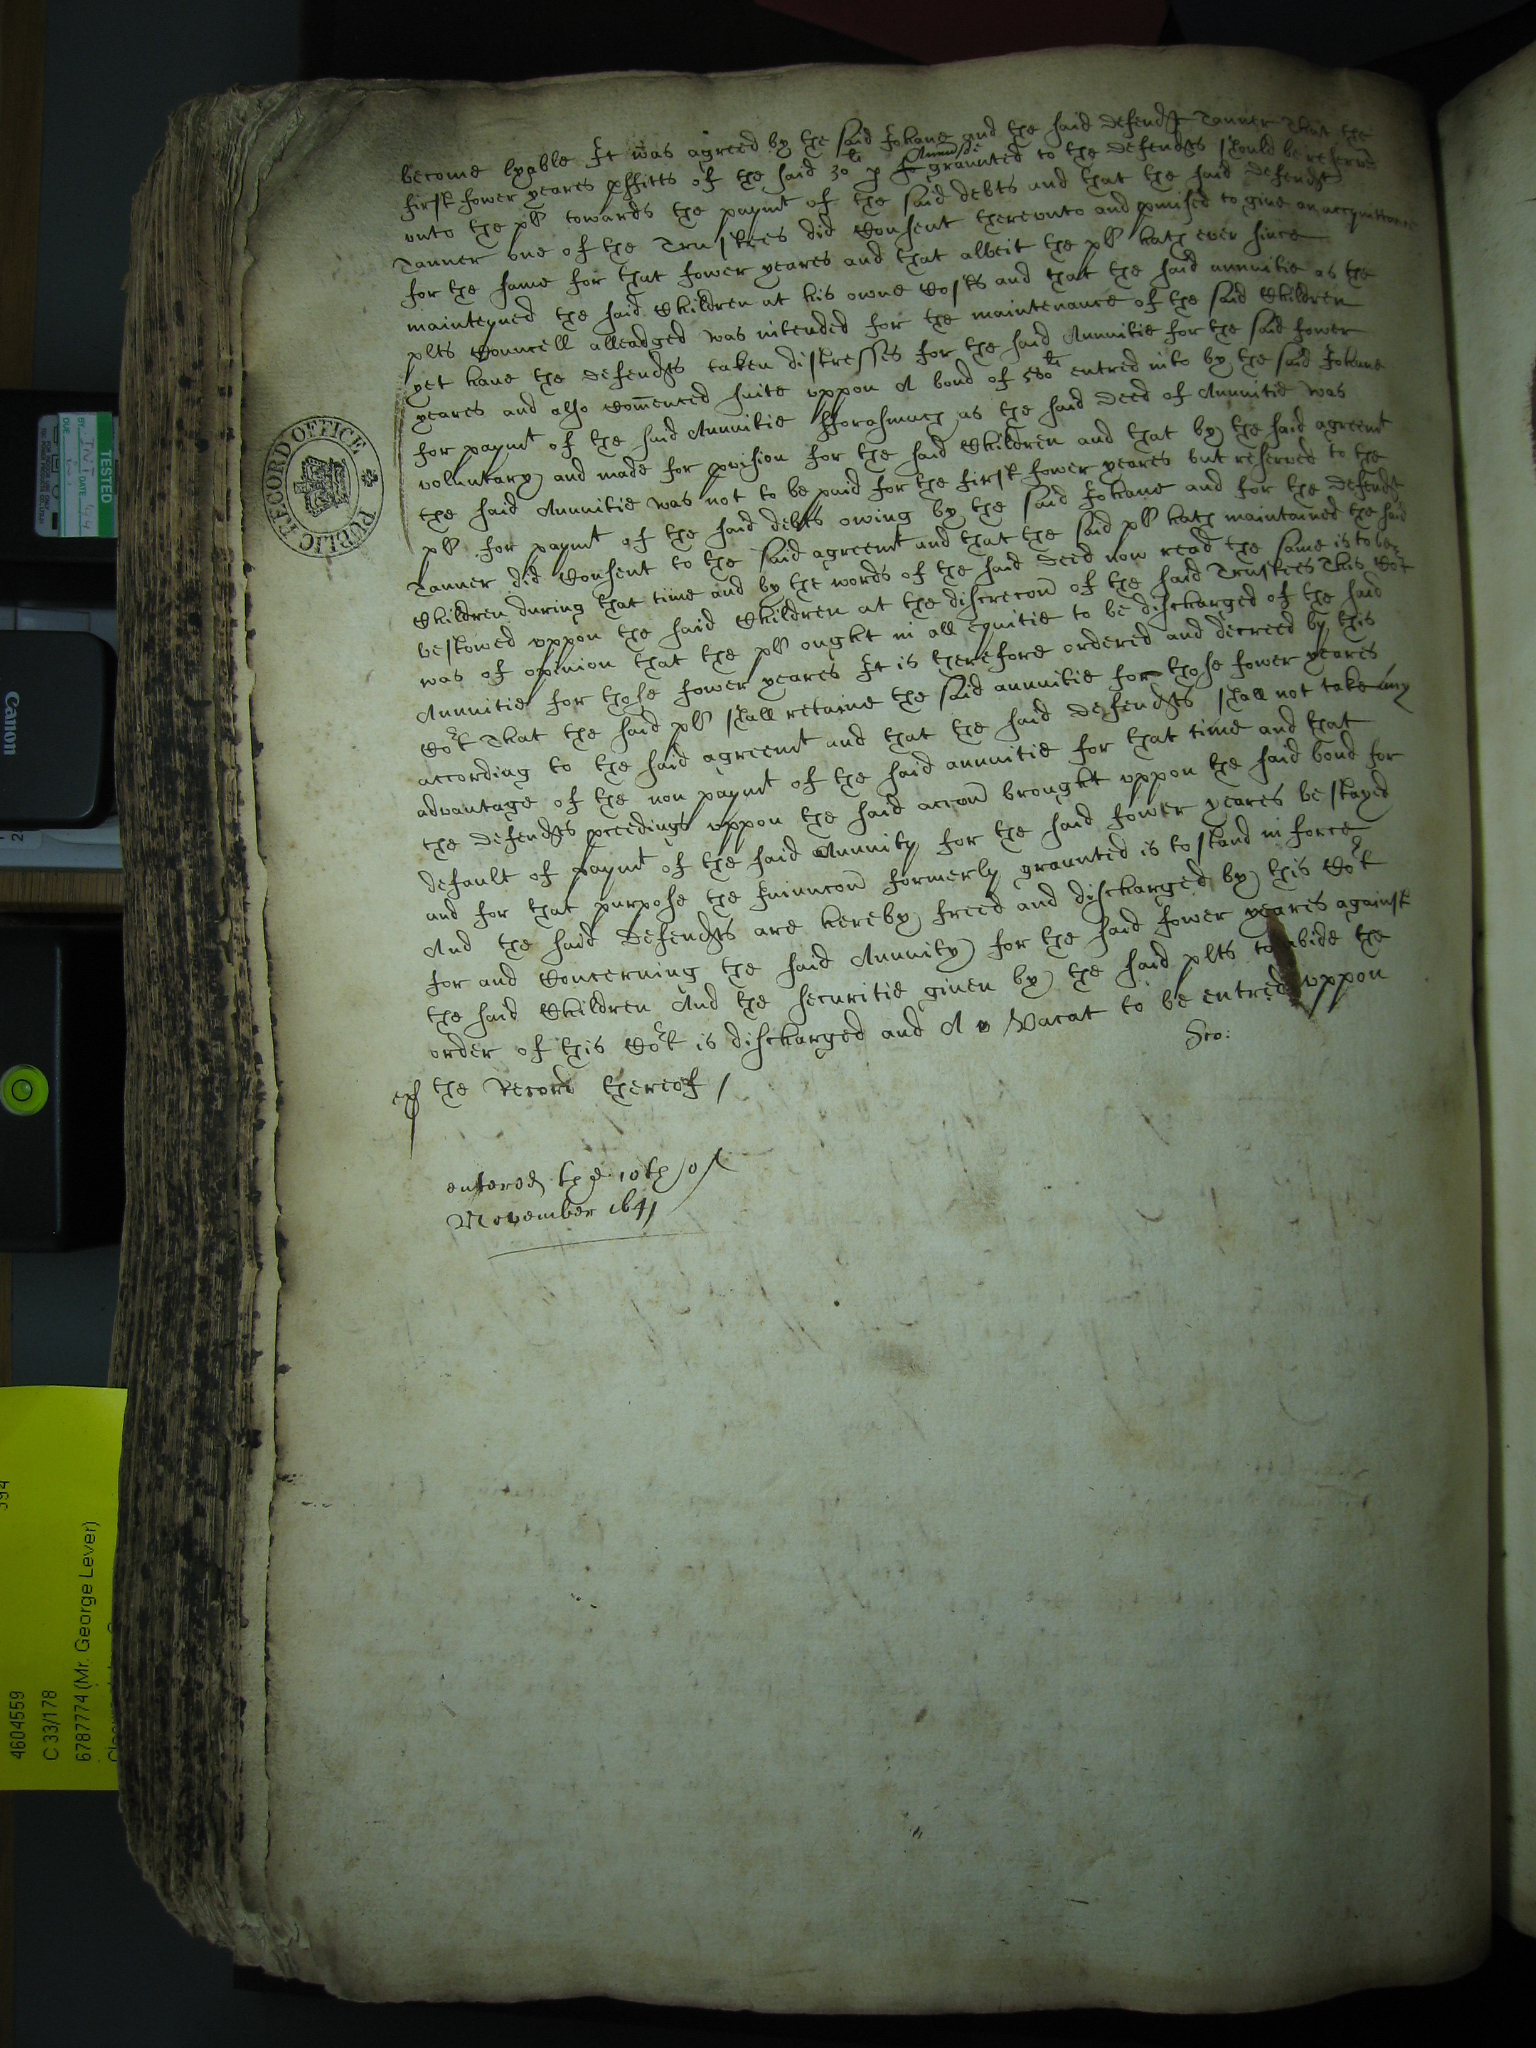 become lyable It was agreed by the said Johane and the said defendt Tanner That the
first fower yeares pffitts of the said 30li p Annu granted to the defendts should be reserved
unto the plt towards the paymt of the said debts and that the said defendt
Tanner one of the Trustees did Consent thereunto and pmised to give an acquittance
for the same for that fower yeares and that albeit the plt hath ever since
mainteyned the said Children at his owne Costs and that the said annuitie as the
plts Councell alleadged was intended for the maintenance of the said Children
yet have the defendts taken distresses for the said Annuitie for the said fower
yeares and also Comenced suite uppon A bond of 580li entred into by the said Johane
for paymt of the said Annuitie fforasmuch as the said deed of Annuitie was
voluntary and made for pvision for the said Children and that by the said agreemt
the said Annuitie was not to be paid for the first fower yeares but reserved to the
plt for paymt of the said debts owing by the said Johane and for the defendt
Tanner did Consent to the said agreemt and that the said plt hath maintained the said
Children during that time and by the words of the said deed now read the same is to be
bestowed uppon the said Children at the discrecon of the said Trustees This Cort
was of opinion that the plt ought in all equitie to be discharged of the said
Annuitie for those fower yeares It is therefore ordered and decreed by this
Cort That the said plt shall retaine the said annuitie for those fower yeares
according to the said agreemt and that the said defendts shall not take any
advantage of the non paymt of the said annuitie for that time and that
the defendts pceedings uppon the said accon brought uppon the said bond for
default of paymt of the said Annuity for the said fower yeares be stayed
and for that purpose the Iniuncon formerly graunted is to stand in force
And the said defendts are hereby freed and discharged by this Cort
for and Concerning the said Annuity for the said fower yeares against
the said Children And the securitie given by the said plts to abide the
order of this Cort is discharged and A Vacat to be entred uppon
the Record thereof /
Geo:
entered the 10th of
November 1641
PUBLIC RECORD OFFICE
TESTED
BY
INT
DATE
DUE
Canon
4604559
C 33/178
6787774 (Mr. George Lever)